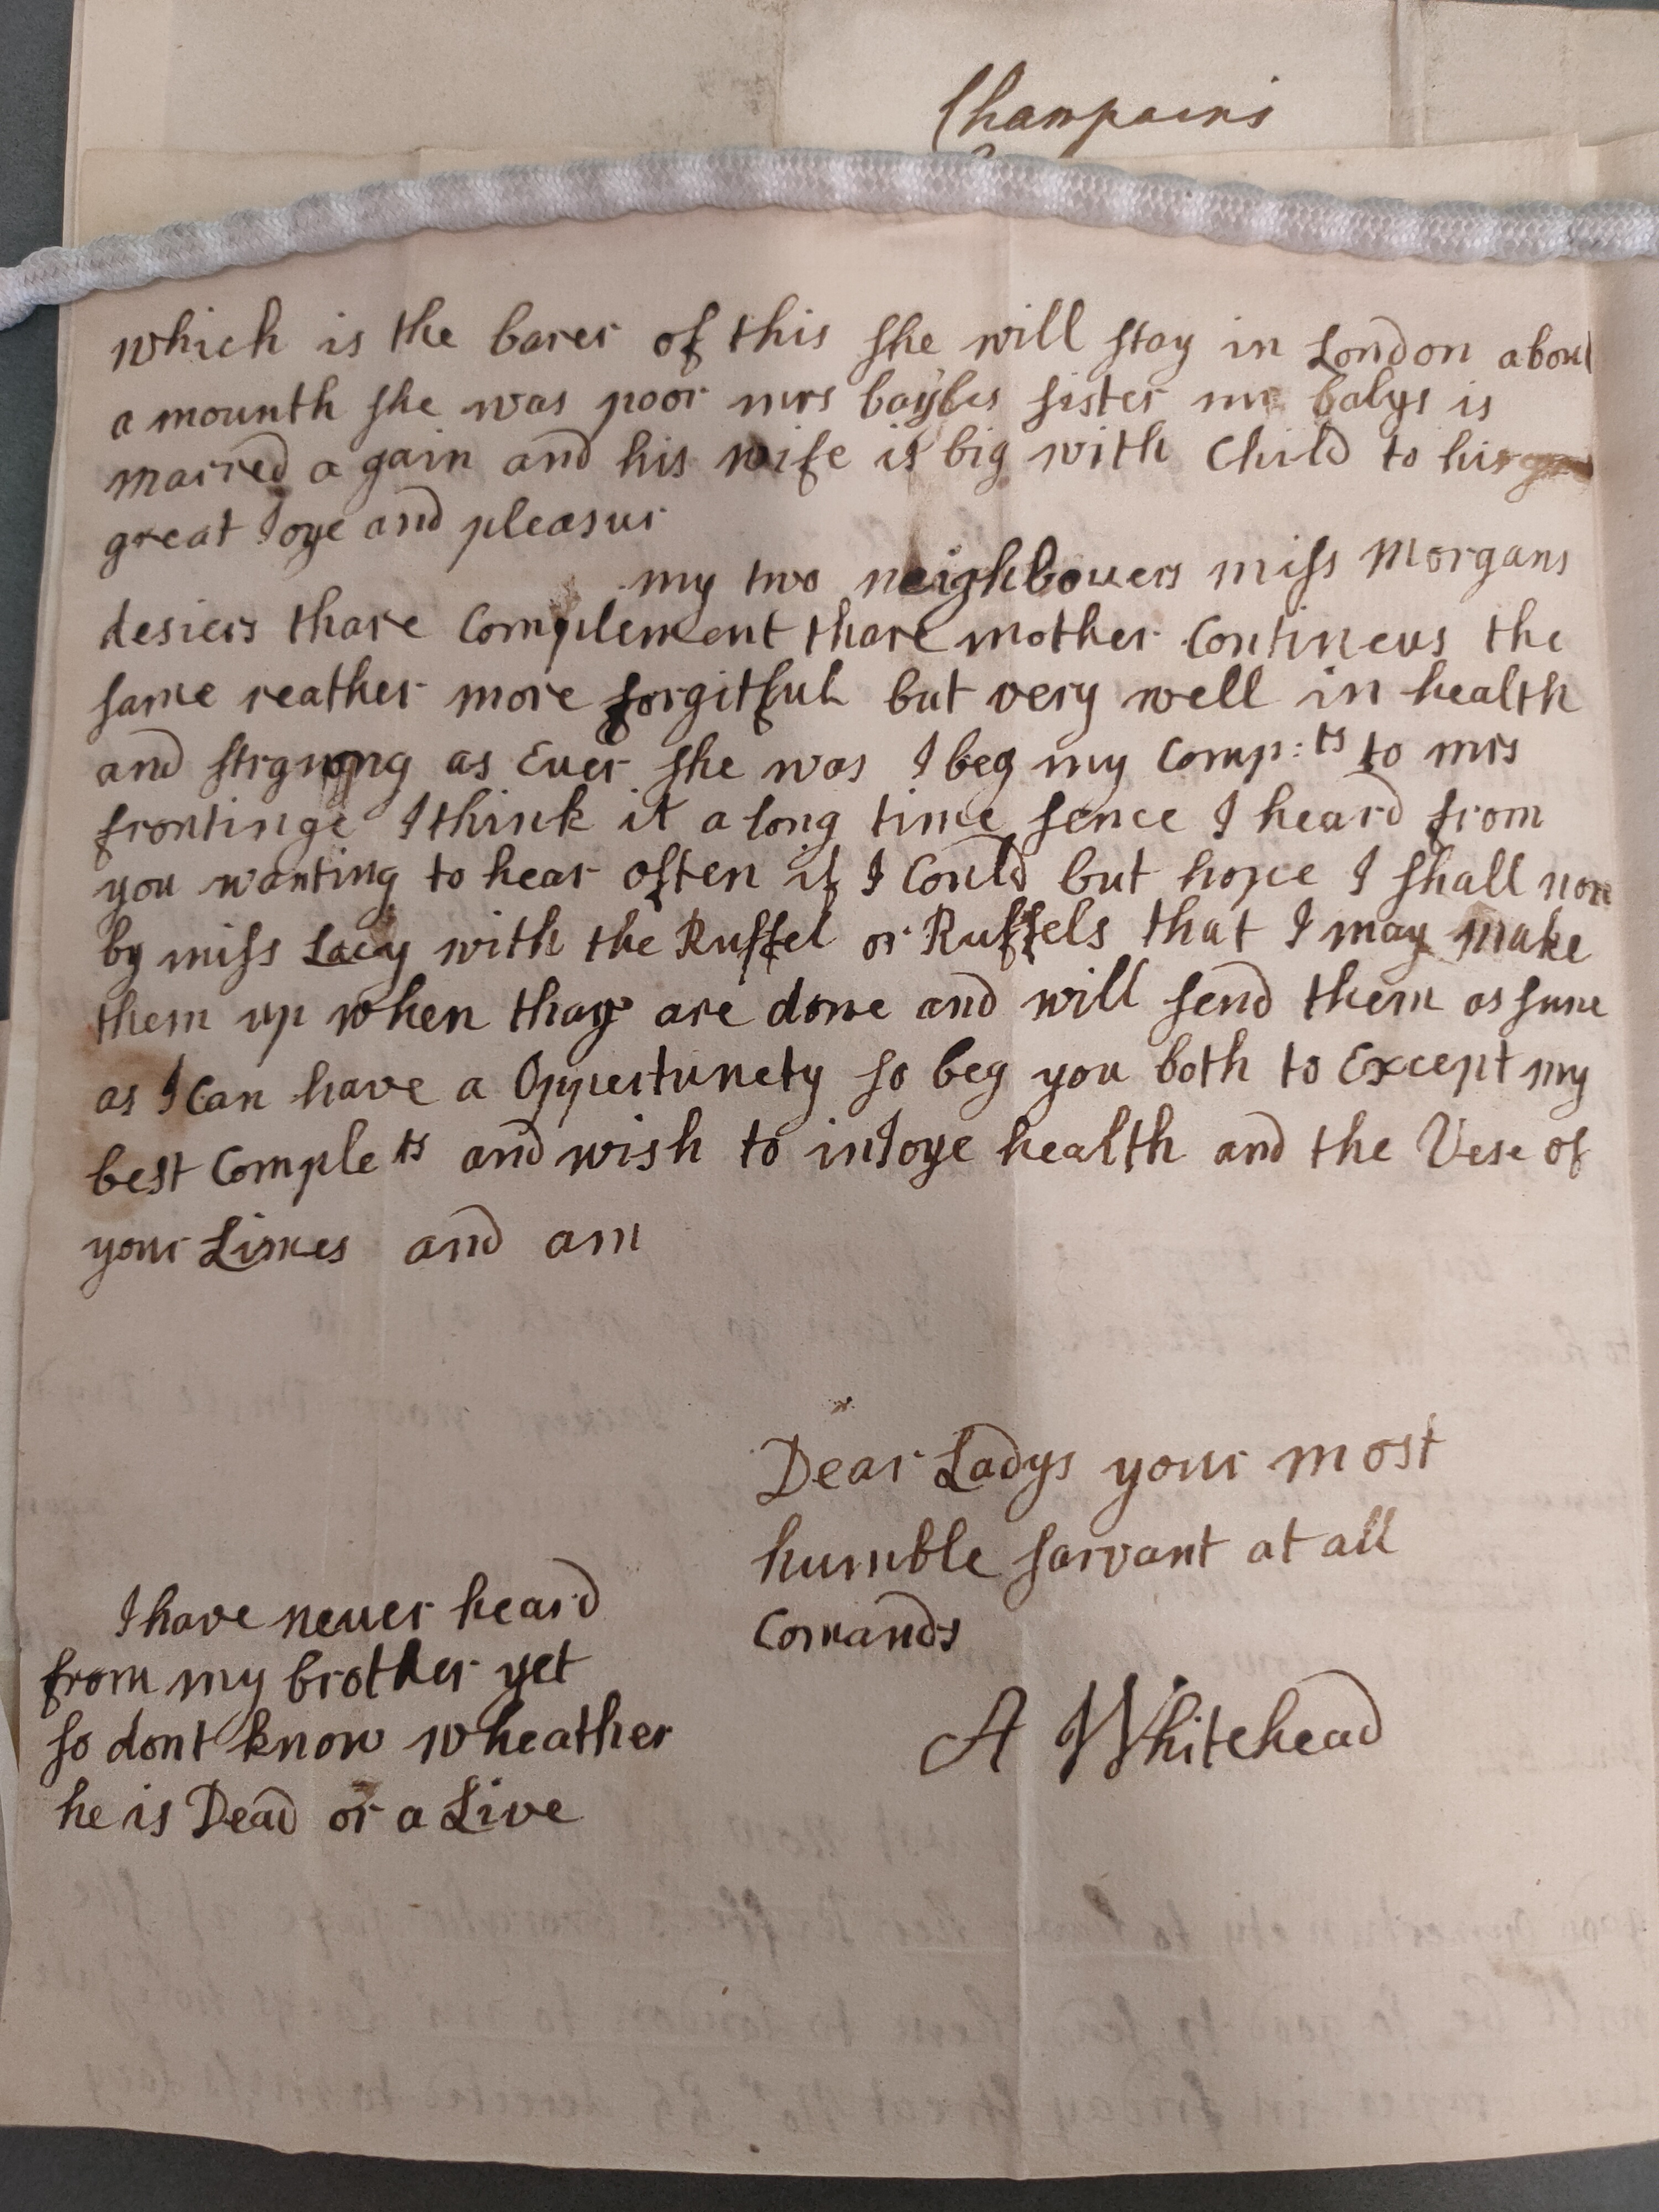 Champains
which is the barer of this she will stay in London about
a mounth she was poor mrs baylies sister mr balys is
marred a gain and his wife is big with Child to his
great Joye and pleasur
my two neighbouers miss Morgans
desiers thare Complement thare mother Contineus the
same reather more forgitful but very well in health
and strgnong as Ever she was I beg my Comp:ts to mrs
frontinge I think it a long time sence I heard from
you wanting to hear often if I Could but hope I shall now
by miss Lacy with the Ruffel or Ruffels that I may make
them up when thay are done and will send them as sune
as I Can have a Oppertunety so beg you both to Except my
best Complets and wish to inJoye health and the Uese of
your Limes and am
Dear Ladys your most
humble sarvant at all
Comands
A Whitehead
I have never heard
from my brother yet
so dont know wheather
he is Dead or a Live